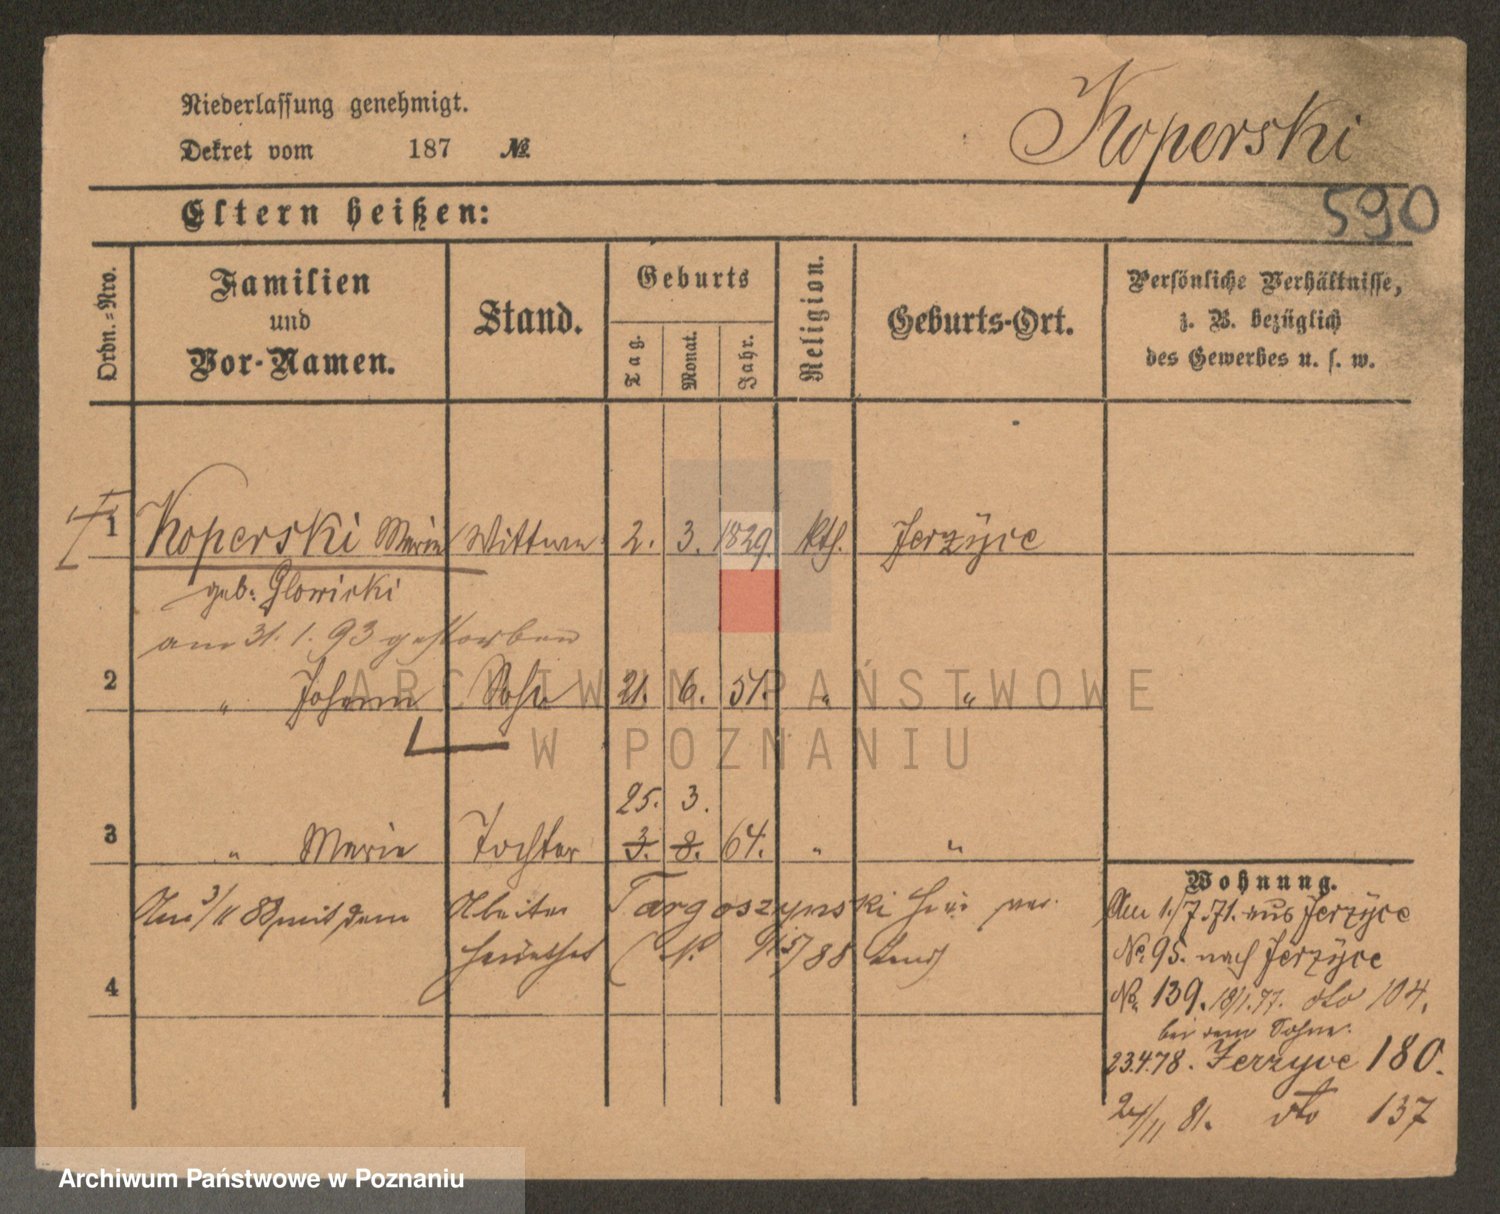 Niederlassung genehmigt.
Koperski
Dekret vom 187 №
590
Eltern heißen:
Ordn.-Nro.
Familien
und
Vor-Namen.
Stand.
Geburts
Tag.
Monat.
Jahr.
Religion.
Geburts-Ort.
Persönliche Verhältnisse,
z. B. bezüglich
des Gewerbes u. s. w.
1 Koperski Marie Wittwe 2. 3. 1829. kth. Jerzÿce
geb. Glowicki
am 31. 1. 93 gestorben
2 " Johann Sohn 21. 6. 51. " "
25. 3.
3 " Marie Tochter 3. 8. 64. " "
Am 3/11 88 mit dem Arbeiter Targoszynski hier ver-
heirathet
4
Wohnung.
Am 1./7.71. aus Jerzÿce
No 95. nach Jerzÿce
No. 139. 18/1.77. dto 104.
bei dem Sohne.
23.4.78. Jerzyce 180.
24/11 81. dto 137
ARCHIWUM PAŃSTWOWE
W POZNANIU
Archiwum Państwowe w Poznaniu